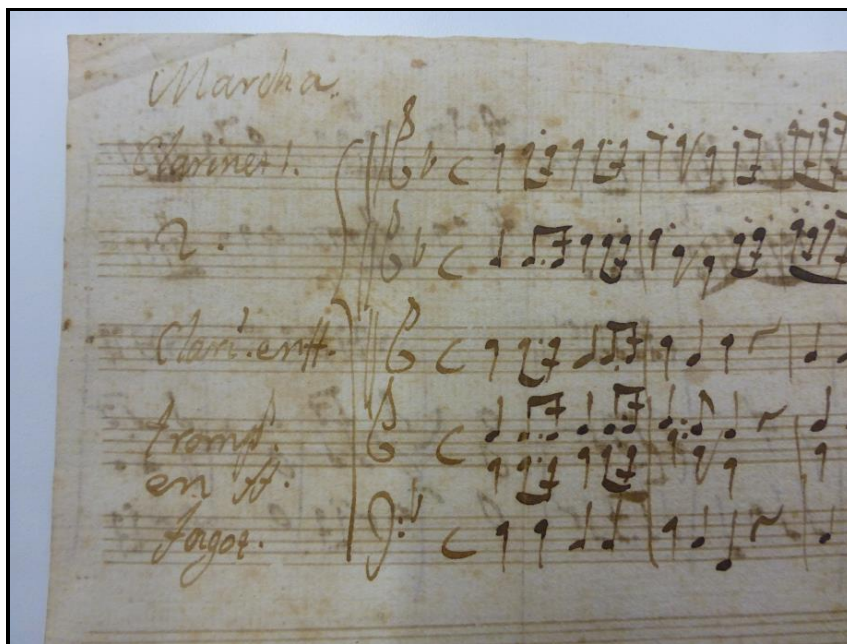 Marcha.
Clarinet 1.
2.
Clari.. en ff.
tromp.
en ff.
fagot.